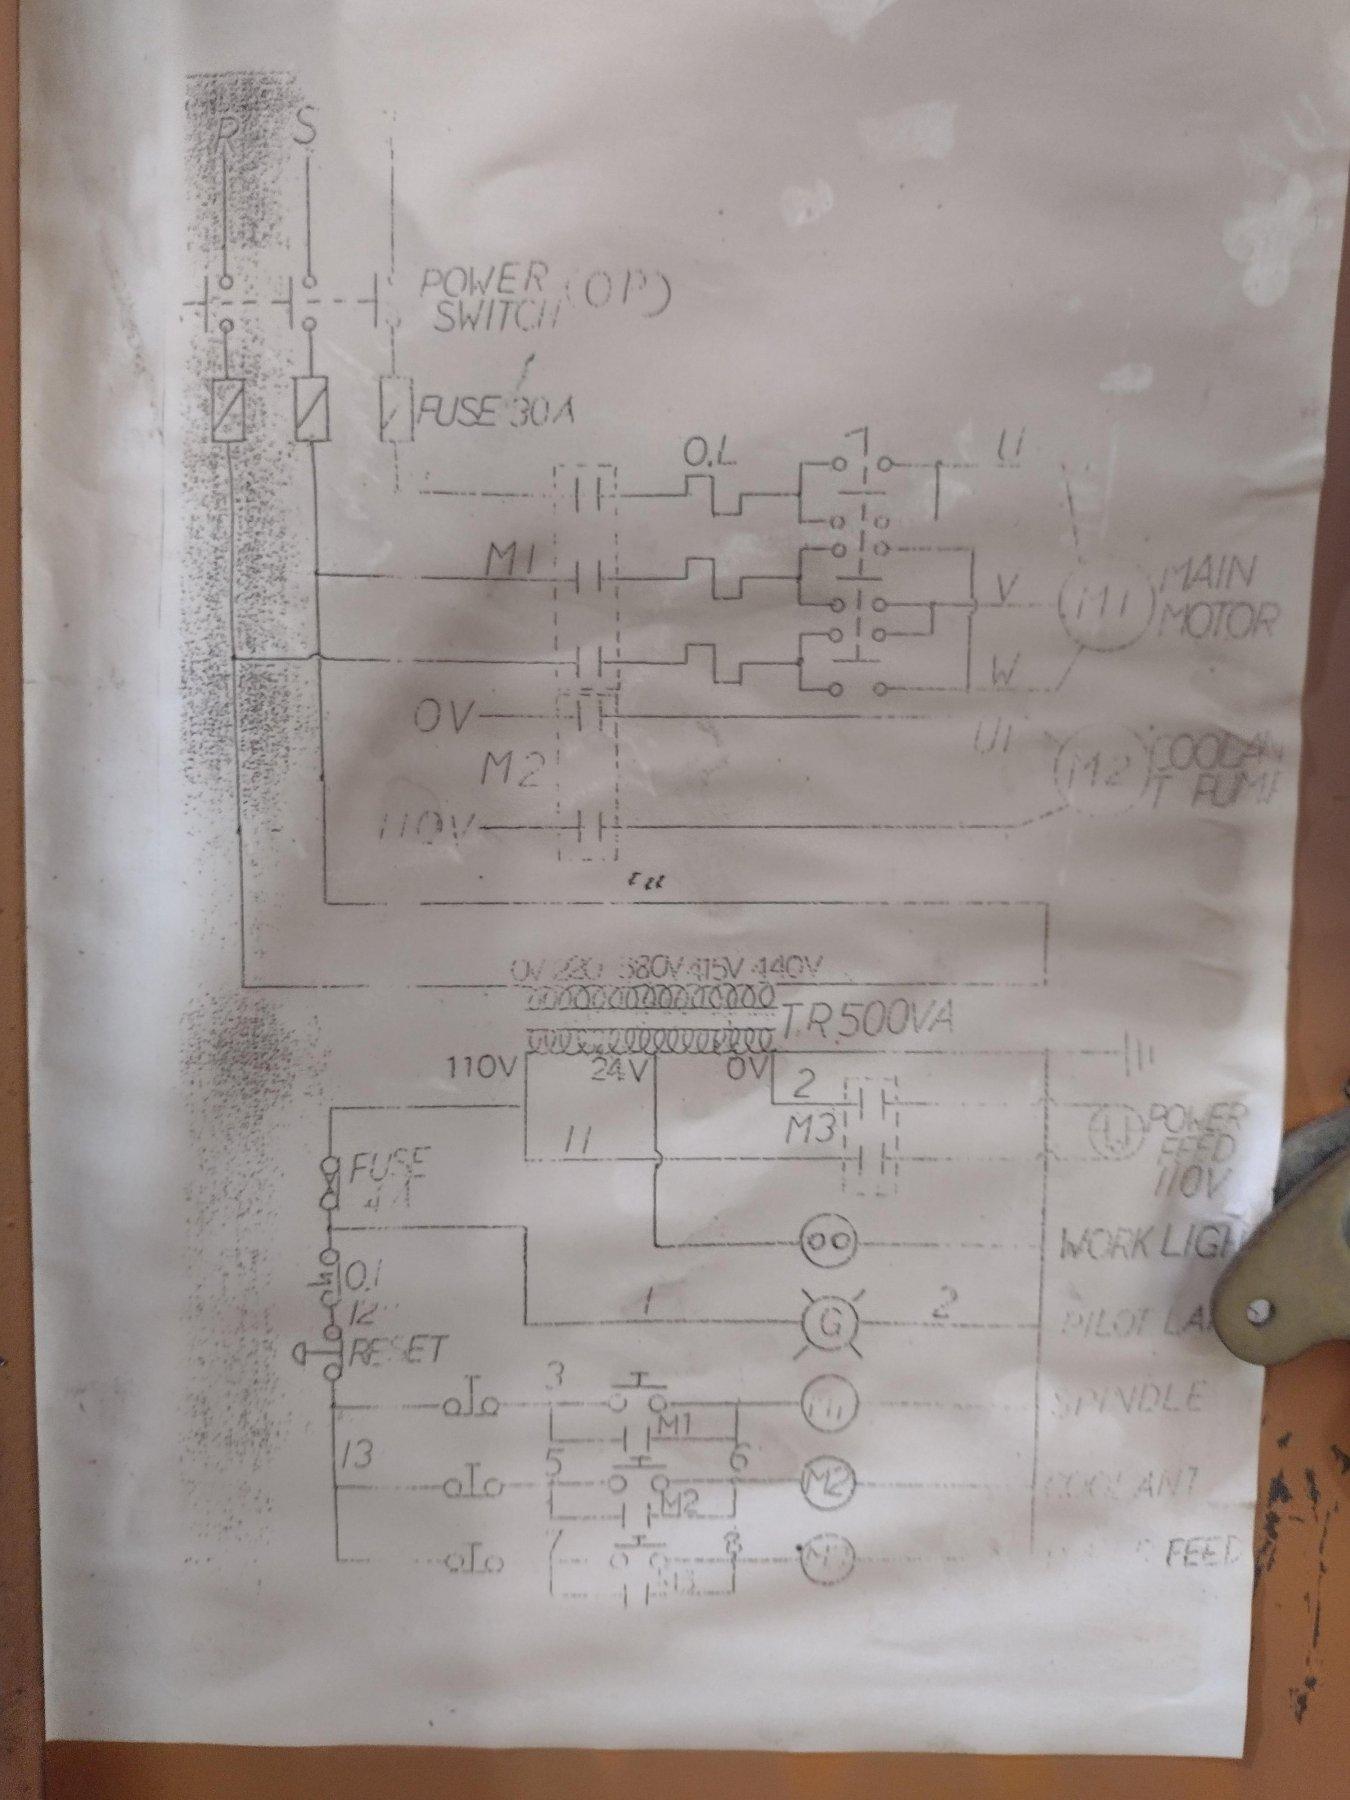 R S
POWER (OP)
SWITCH
FUSE 30A
O.L U
M1
V M1 MAIN
MOTOR
W
0V
U1
M2 M2 COOLAN
T PUMP
110V
0V 220 380V 415V 440V
T.R 500VA
110V 24V 0V
2
M3 POWER
11 FEED
FUSE 110V
WORK LIGH
O.L
12 1 G 2 PILOT LA
RESET
3 M1 SPINDLE
M1
13 5 6
M2 COOLANT
M2
7 8
FEED